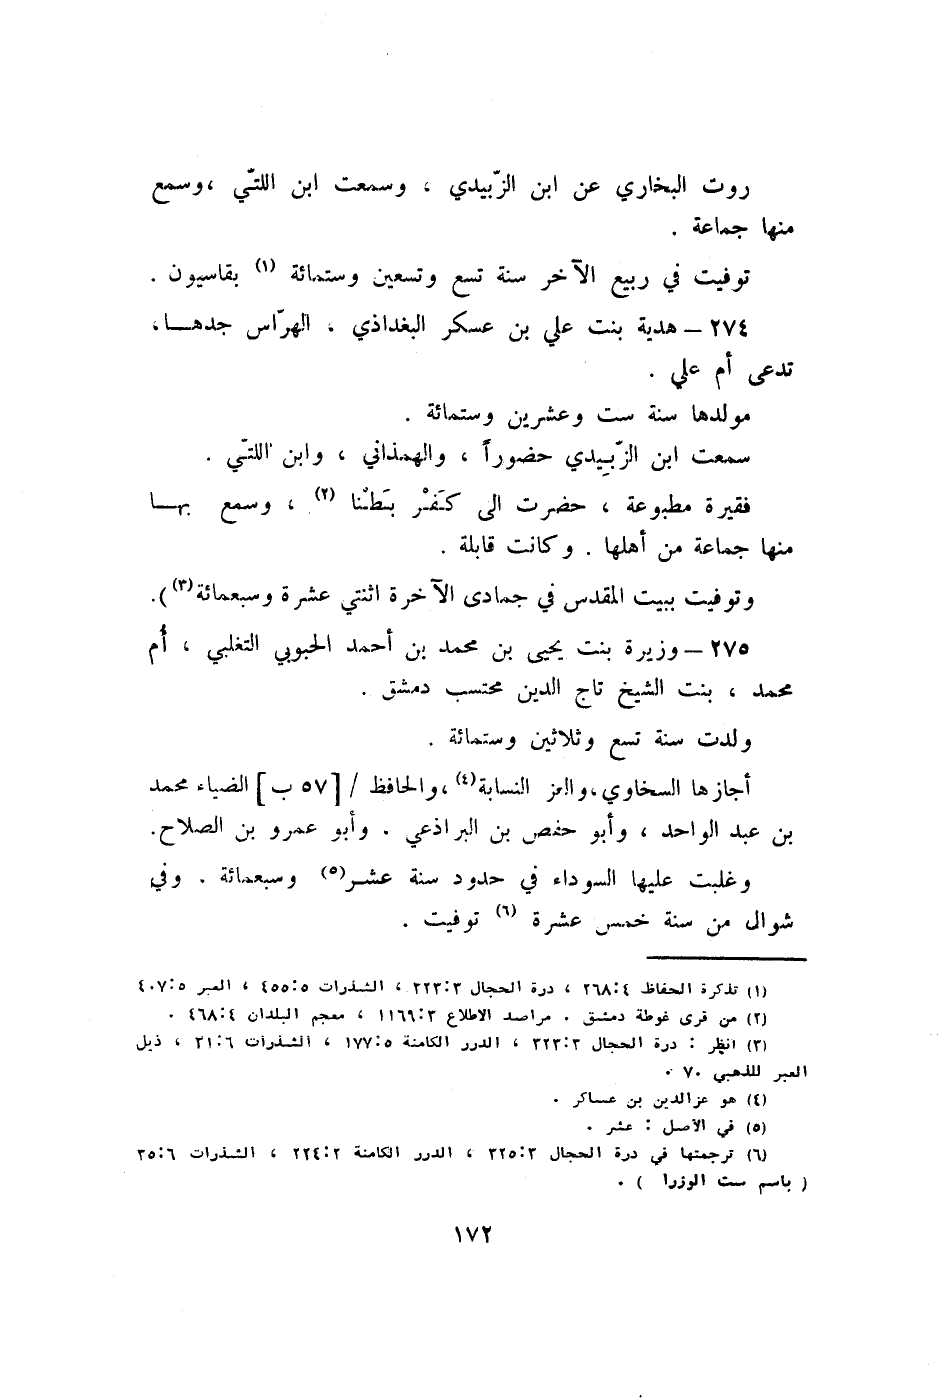 روت البخاري عن ابن الزّبيدي ، وسمعت ابن اللتّي ،وسمع
منها جماعة .
توفيت في ربيع الآخر سنة تسع وتسعين وستمائة (١) بقاسيون .
٢٧٤ ــ هدية بنت علي بن عسكر البغداذي ، الهرّاس جدهــا،
تدعى أم علي .
مولدها سنة ست وعشرين وستمائة .
سمعت ابن الزّبيدي حضوراً ، والهمذاني ، وابن اللتّي .
فقيرة مطبوعة ، حضرت الى كَفَرْ بَطْنا (٢) ، وسمع بهــا
منها جماعة من أهلها . وكانت قابلة .
وتوفيت ببيت المقدس في جمادى الآخرة اثنتي عشرة وسبعمائة (٣)).
٢٧٥ ــ وزيرة بنت يحيى بن محمد بن أحمد الحبوبي التغلبي ، أُم
محمد ، بنت الشيخ تاج الدين محتسب دمشق .
ولدت سنة تسع وثلاثين وستمائة .
أجازها السخاوي،والعز النسابة(٤)،والحافظ / [٥٧ ب] الضياء محمد
بن عبد الواحد ، وأبو حفص بن البراذعي . وأبو عمرو بن الصلاح.
وغلبت عليها السوداء في حدود سنة عشـر(٥) وسبعمائة . وفي
شوال من سنة خمس عشرة (٦) توفيت .
(١) تذكرة الحفاظ ٢٦٨:٤ ، درة الحجال ٢٢٣:٣ ، الشذرات ٤٥٥:٥ ، العبر ٤٠٧:٥
(٢) من قرى غوطة دمشق . مراصد الاطلاع ١١٦٩:٣ ، معجم البلدان ٤٦٨:٤ .
(٣) انظر : درة الحجال ٣٢٣:٣ ، الدرر الكامنة ١٧٧:٥ ، الشذرات ٣١:٦ ، ذيل
العبر للذهبي ٧٠ .
(٤) هو عزالدين بن عساكر .
(٥) في الأصل : عشر .
(٦) ترجمتها في درة الحجال ٣٢٥:٣ ، الدرر الكامنة ٢٢٤:٢ ، الشذرات ٣٥:٦
( باسم ست الوزرا ) .
١٧٢